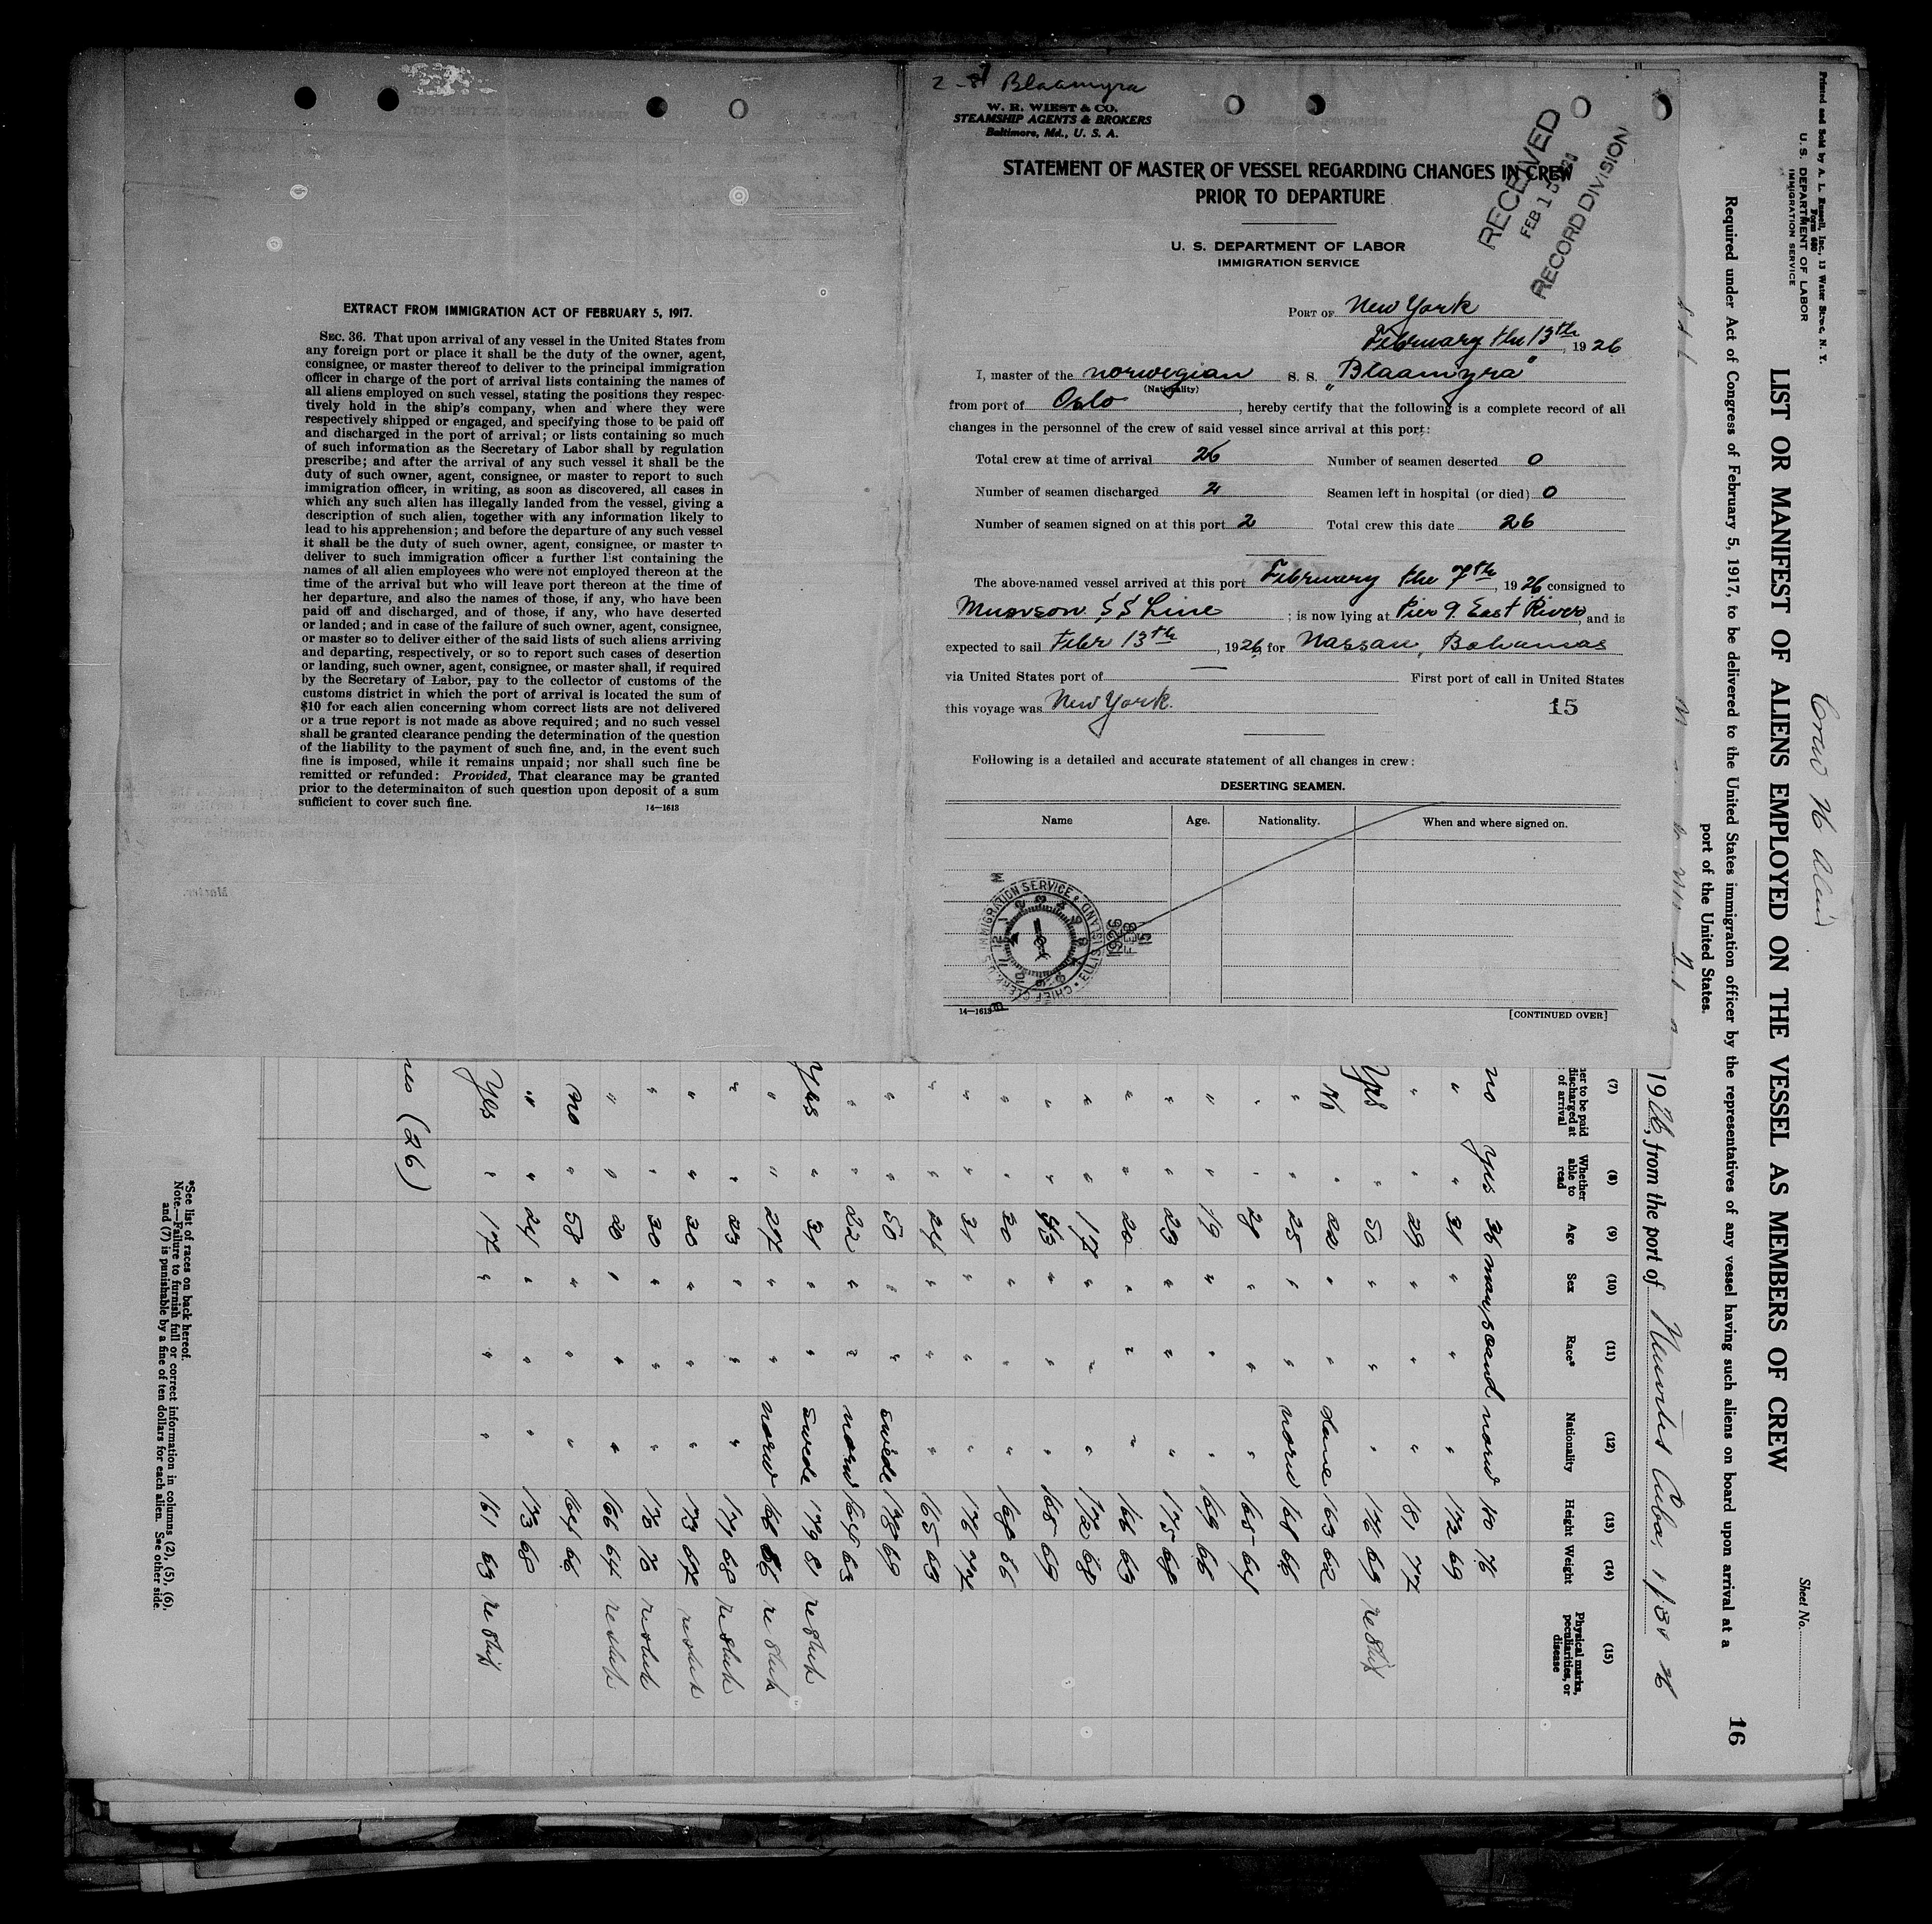 EXTRACT FROM IMMIGRATION ACT OF FEBRUARY 5, 1917.
SEC. 36. That upon arrival of any vessel in the United States from
any foreign port or place it shall be the duty of the owner, agent,
consignee, or master thereof to deliver to the principal immigration
officer in charge of the port of arrival lists containing the names of
all aliens employed on such vessel, stating the positions they respec-
tively hold in the ship's company, when and where they were
respectively shipped or engaged, and specifying those to be paid off
and discharged in the port of arrival; or lists containing so much
of such information as the Secretary of Labor shall by regulation
prescribe; and after the arrival of any such vessel it shall be the
duty of such owner, agent, consignee, or master to report to such
immigration officer, in writing, as soon as discovered, all cases in
which any such alien has illegally landed from the vessel, giving a
description of such alien, together with any information likely to
lead to his apprehension; and before the departure of any such vessel
it shall be the duty of such owner, agent, consignee, or master to
deliver to such immigration officer a further list containing the
names of all alien employees who were not employed thereon at the
time of the arrival but who will leave port thereon at the time of
her departure, and also the names of those, if any, who have been
paid off and discharged, and of those, if any, who have deserted
or landed; and in case of the failure of such owner, agent, consignee,
or master so to deliver either of the said lists of such aliens arriving
and departing, respectively, or so to report such cases of desertion
or landing, such owner, agent, consignee, or master shall, if required
by the Secretary of Labor, pay to the collector of customs of the
customs district in which the port of arrival is located the sum of
$10 for each alien concerning whom correct lists are not delivered
or a true report is not made as above required; and no such vessel
shall be granted clearance pending the determination of the question
of the liability to the payment of such fine, and, in the event such
fine is imposed, while it remains unpaid; nor shall such fine be
remitted or refunded: Provided, That clearance may be granted
prior to the determinaiton of such question upon deposit of a sum
sufficient to cover such fine.
14—1613
Blaamyra
W. R. WIEST & CO.
STEAMSHIP AGENTS & BROKERS
Baltimore, Md., U. S. A.
RECEIVED
FEB 15
RECORD DIVISION
STATEMENT OF MASTER OF VESSEL REGARDING CHANGES IN CREW
PRIOR TO DEPARTURE
U. S. DEPARTMENT OF LABOR
IMMIGRATION SERVICE
PORT OF New York
February the 13th, 1926
I, master of the norwegian S. S. "Blaamyra"
(Nationality)
from port of Oslo, hereby certify that the following is a complete record of all
changes in the personnel of the crew of said vessel since arrival at this port:
Total crew at time of arrival 26 Number of seamen deserted 0
Number of seamen discharged 2 Seamen left in hospital (or died) 0
Number of seamen signed on at this port 2 Total crew this date 26
The above-named vessel arrived at this port February the 7th, 1926 consigned to
Munson SS Line; is now lying at Pier 9. East River, and is
expected to sail Febr 13th, 1926, for Nassau, Bahamas
via United States port of — First port of call in United States
this voyage was New York.
15
Following is a detailed and accurate statement of all changes in crew:
DESERTING SEAMEN.
Name Age. Nationality. When and where signed on.
CHIEF CLERK U. S. IMMIGRATION SERVICE ELLIS ISLAND
1926 FEB
14—1613
[CONTINUED OVER]
Printed and Sold by A. L. Russell, Inc., 13 Water Street, N. Y.
Form 680
U. S. DEPARTMENT OF LABOR
IMMIGRATION SERVICE
Sheet No.
LIST OR MANIFEST OF ALIENS EMPLOYED ON THE VESSEL AS MEMBERS OF CREW
Required under Act of Congress of February 5, 1917, to be delivered to the United States immigration officer by the representatives of any vessel having such aliens on board upon arrival at a
port of the United States.
16
1926, from the port of Nuevitas Cuba, 1/30 26
(7) (8) (9) (10) (11) (12) (13) (14) (15)
her to be paid discharged at of arrival
Whether able to read
Age
Sex
Race*
Nationality
Height
Weight
Physical marks, peculiarities, or disease
no yes 36 man scand norw 76
" " 31 " " " 172 69
" " 29 " " " 181 77
yes " 50 " " " 176 69 reship
No " 22 " " dane 163 62
" " 25 " " norw 168 66
" " 21 " " " 165 64
" " 19 " " " 169 66
" " 23 " " " 175 68
" " 20 " " " 166 63
" " 17 " " " 172 68
" " 43 " " " 165 69
" " 30 " " " 168 66
" " 31 " " " 176 74
" " 24 " " " 165 63
" " 50 " " swede 178 69
" " 22 " " norw 164 63
yes " 31 " " swede 179 81 reship
" " 27 " " norw 166 66 reship
" " 23 " " " 171 68 reship
" " 30 " " " 173 67 reship
" " 30 " " " 176 70 reship
" " 20 " " " 166 64 reship
no " 58 " " " 164 66
" " 24 " " " 173 68
yes " 17 " " " 161 63 reship
(26)
*See list of races on back hereof.
Note.—Failure to furnish full or correct information in columns (2), (5), (6),
and (7) is punishable by a fine of ten dollars for each alien. See other side.